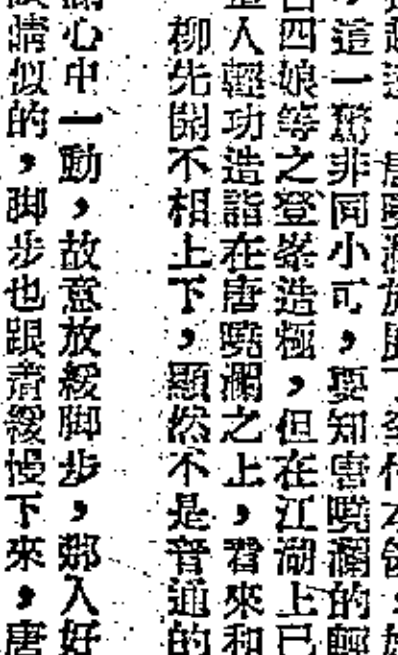 ，這一驚非同小可，要知唐曉瀾的輕
四娘等之登峯造極，但在江湖上已
人輕功造詣在唐曉瀾之上，看來和
柳先開不相上下，顯然不是普通的
心中一動，故意放緩脚步，那人好
睛似的，脚步也跟着緩慢下來，唐